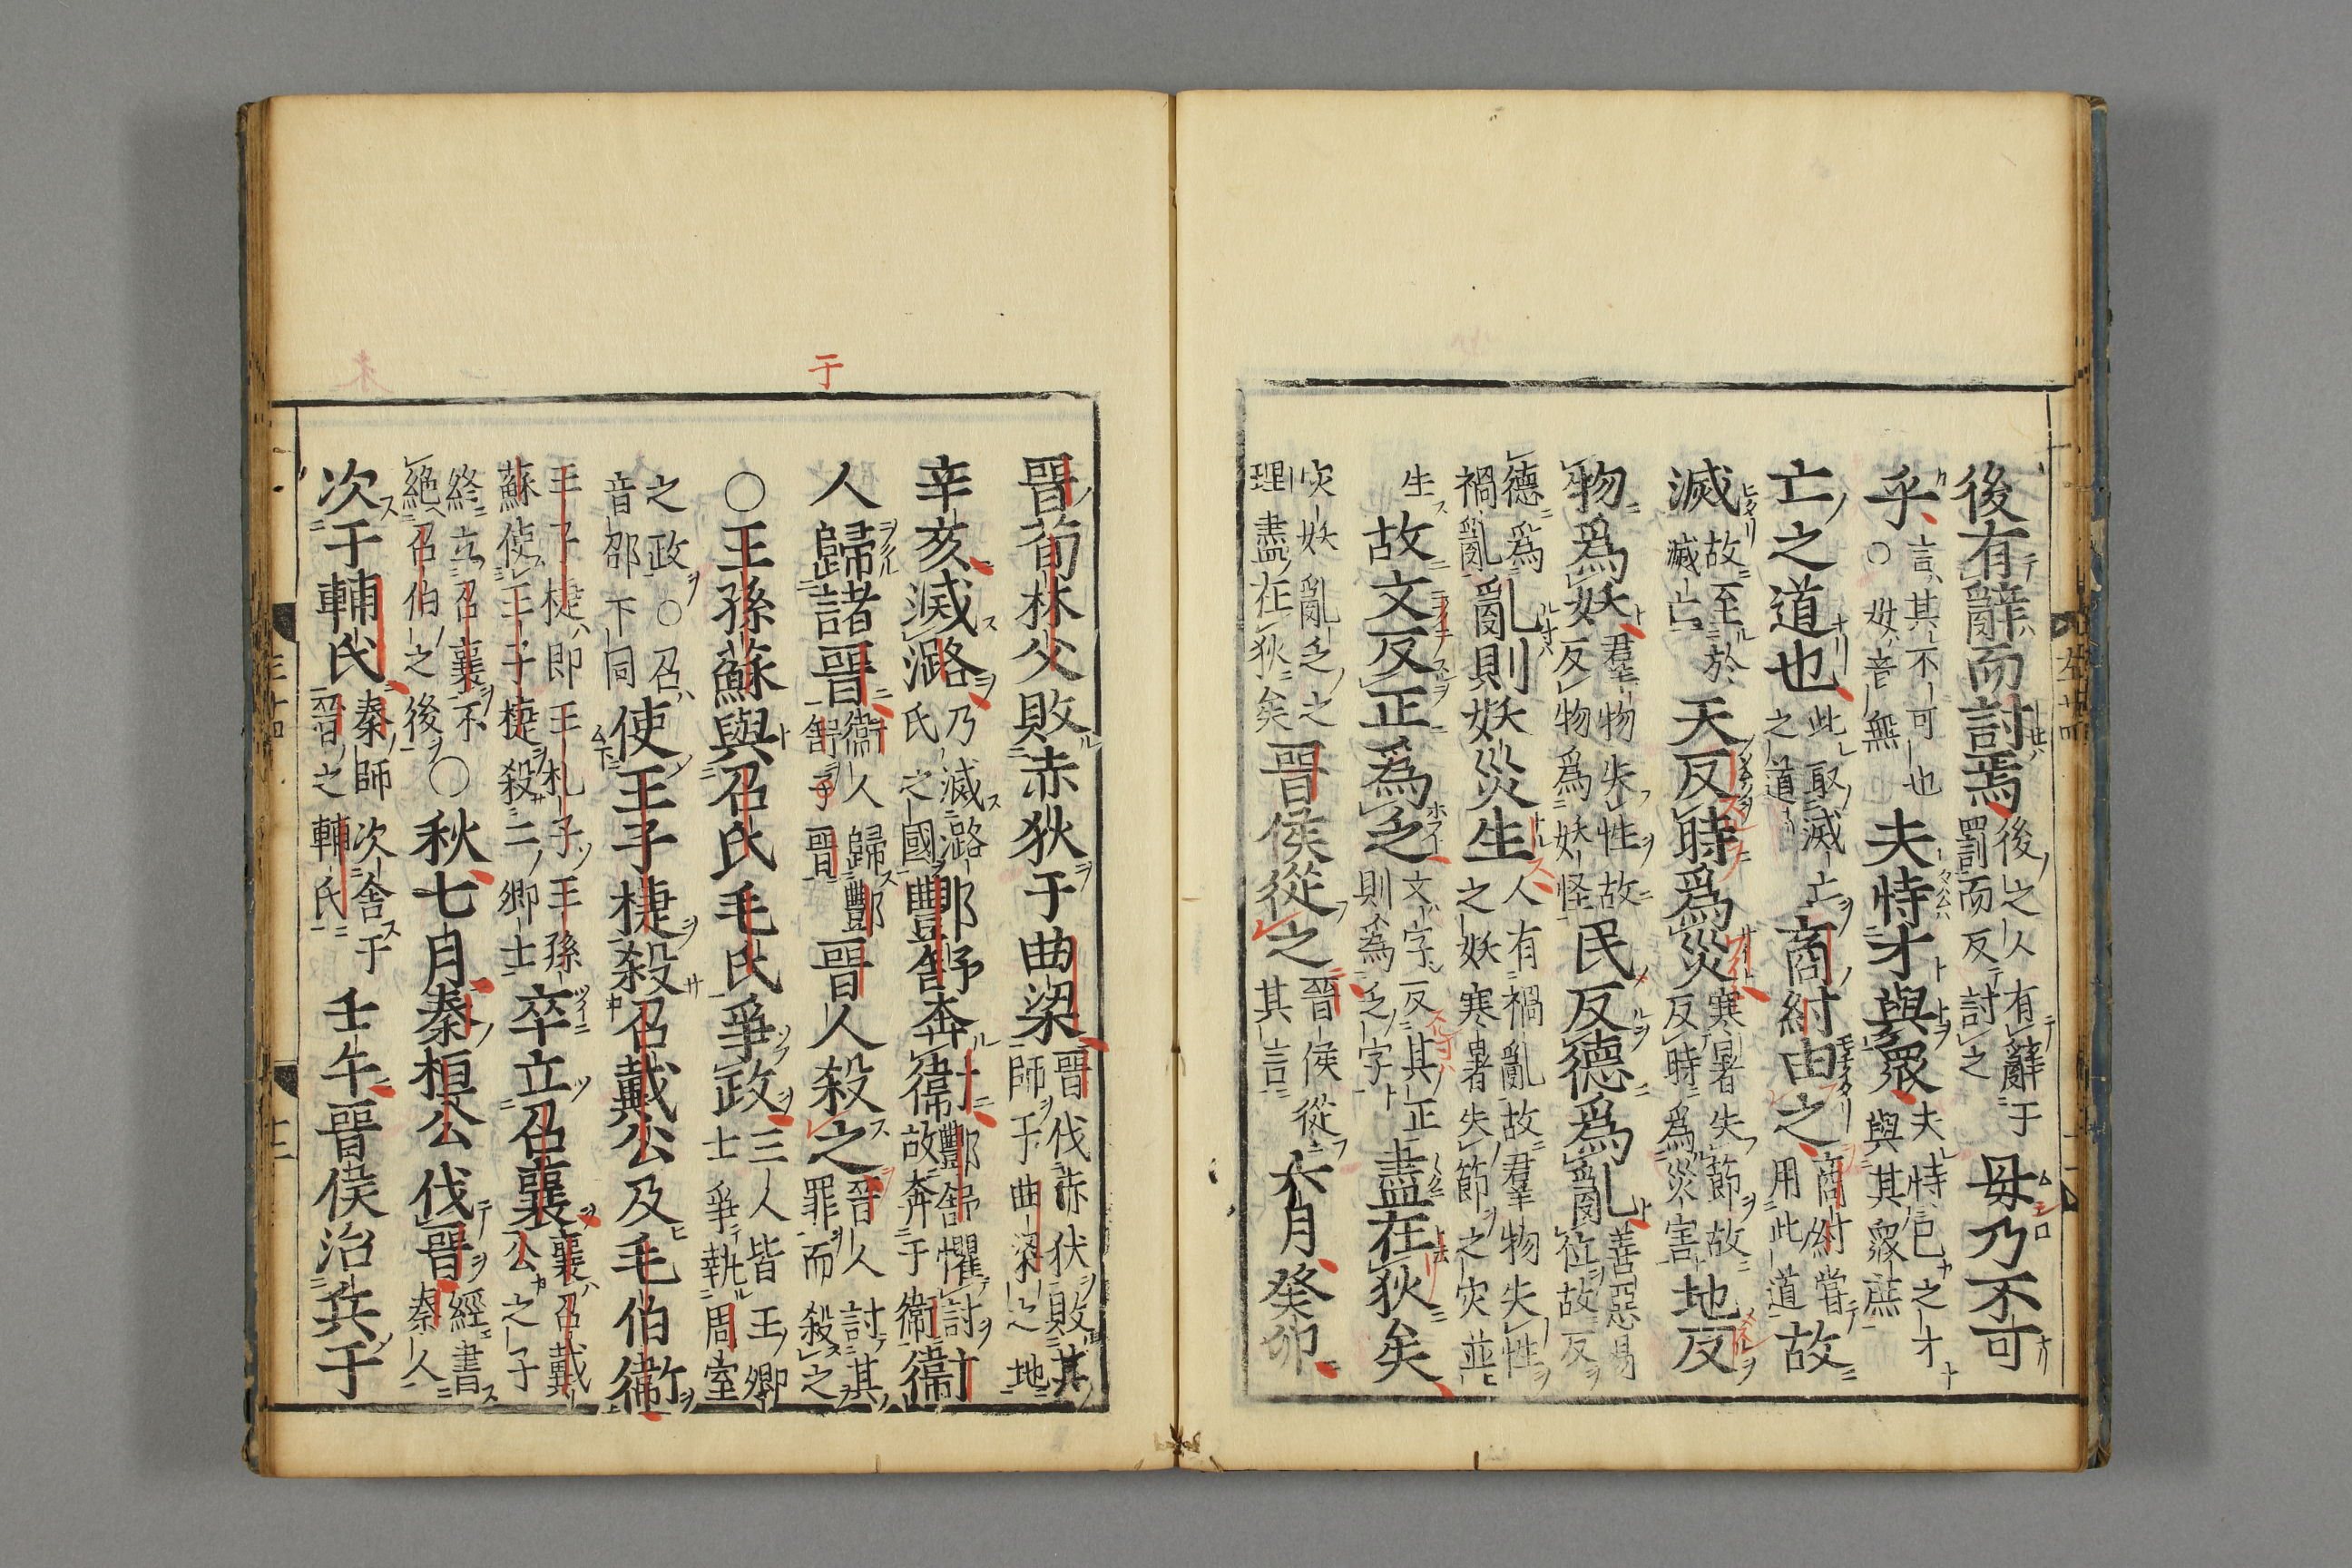 後有辭而討焉後之人有辭于罰而反討之毋乃不可
乎言其不可也○毋音無夫恃才與衆夫恃己之才與其衆庶
亡之道也此取滅亡之道商紂由之商紂嘗用此道故
滅故至於滅亡天反時爲災寒暑失節故反時爲災害地反
物爲妖羣物失性故反物爲妖怪民反德爲亂善惡易位故反
德爲禍亂亂則妖災生人有禍亂故羣物失性之妖寒暑失節之灾並
生故文反正爲乏文字反其正則為乏字盡在狄矣
灾妖亂乏之理盡在狄矣晉侯從之晉侯從其言六月癸卯
于
晉荀林父敗赤狄于曲梁晉伐赤狄敗其師于曲梁之地
辛亥滅潞乃滅潞氏之國酆舒奔衞酆舒懼討故奔于衞衞
人歸諸晉衞人歸酆舒于晉晉人殺之晉人討其罪而殺之
○王孫蘇與召氏毛氏爭政三人皆王卿士爭執周室
之政○召音邵下同使王子捷殺召戴公及毛伯衞
王子捷即王札子王孫蘇使王子捷殺二卿士卒立召襄襄召戴公之子
終立召襄不絶召伯之後○秋七月秦桓公伐晉經書秦人
次于輔氏秦師次舍于晉之輔氏壬午晉侯治兵于